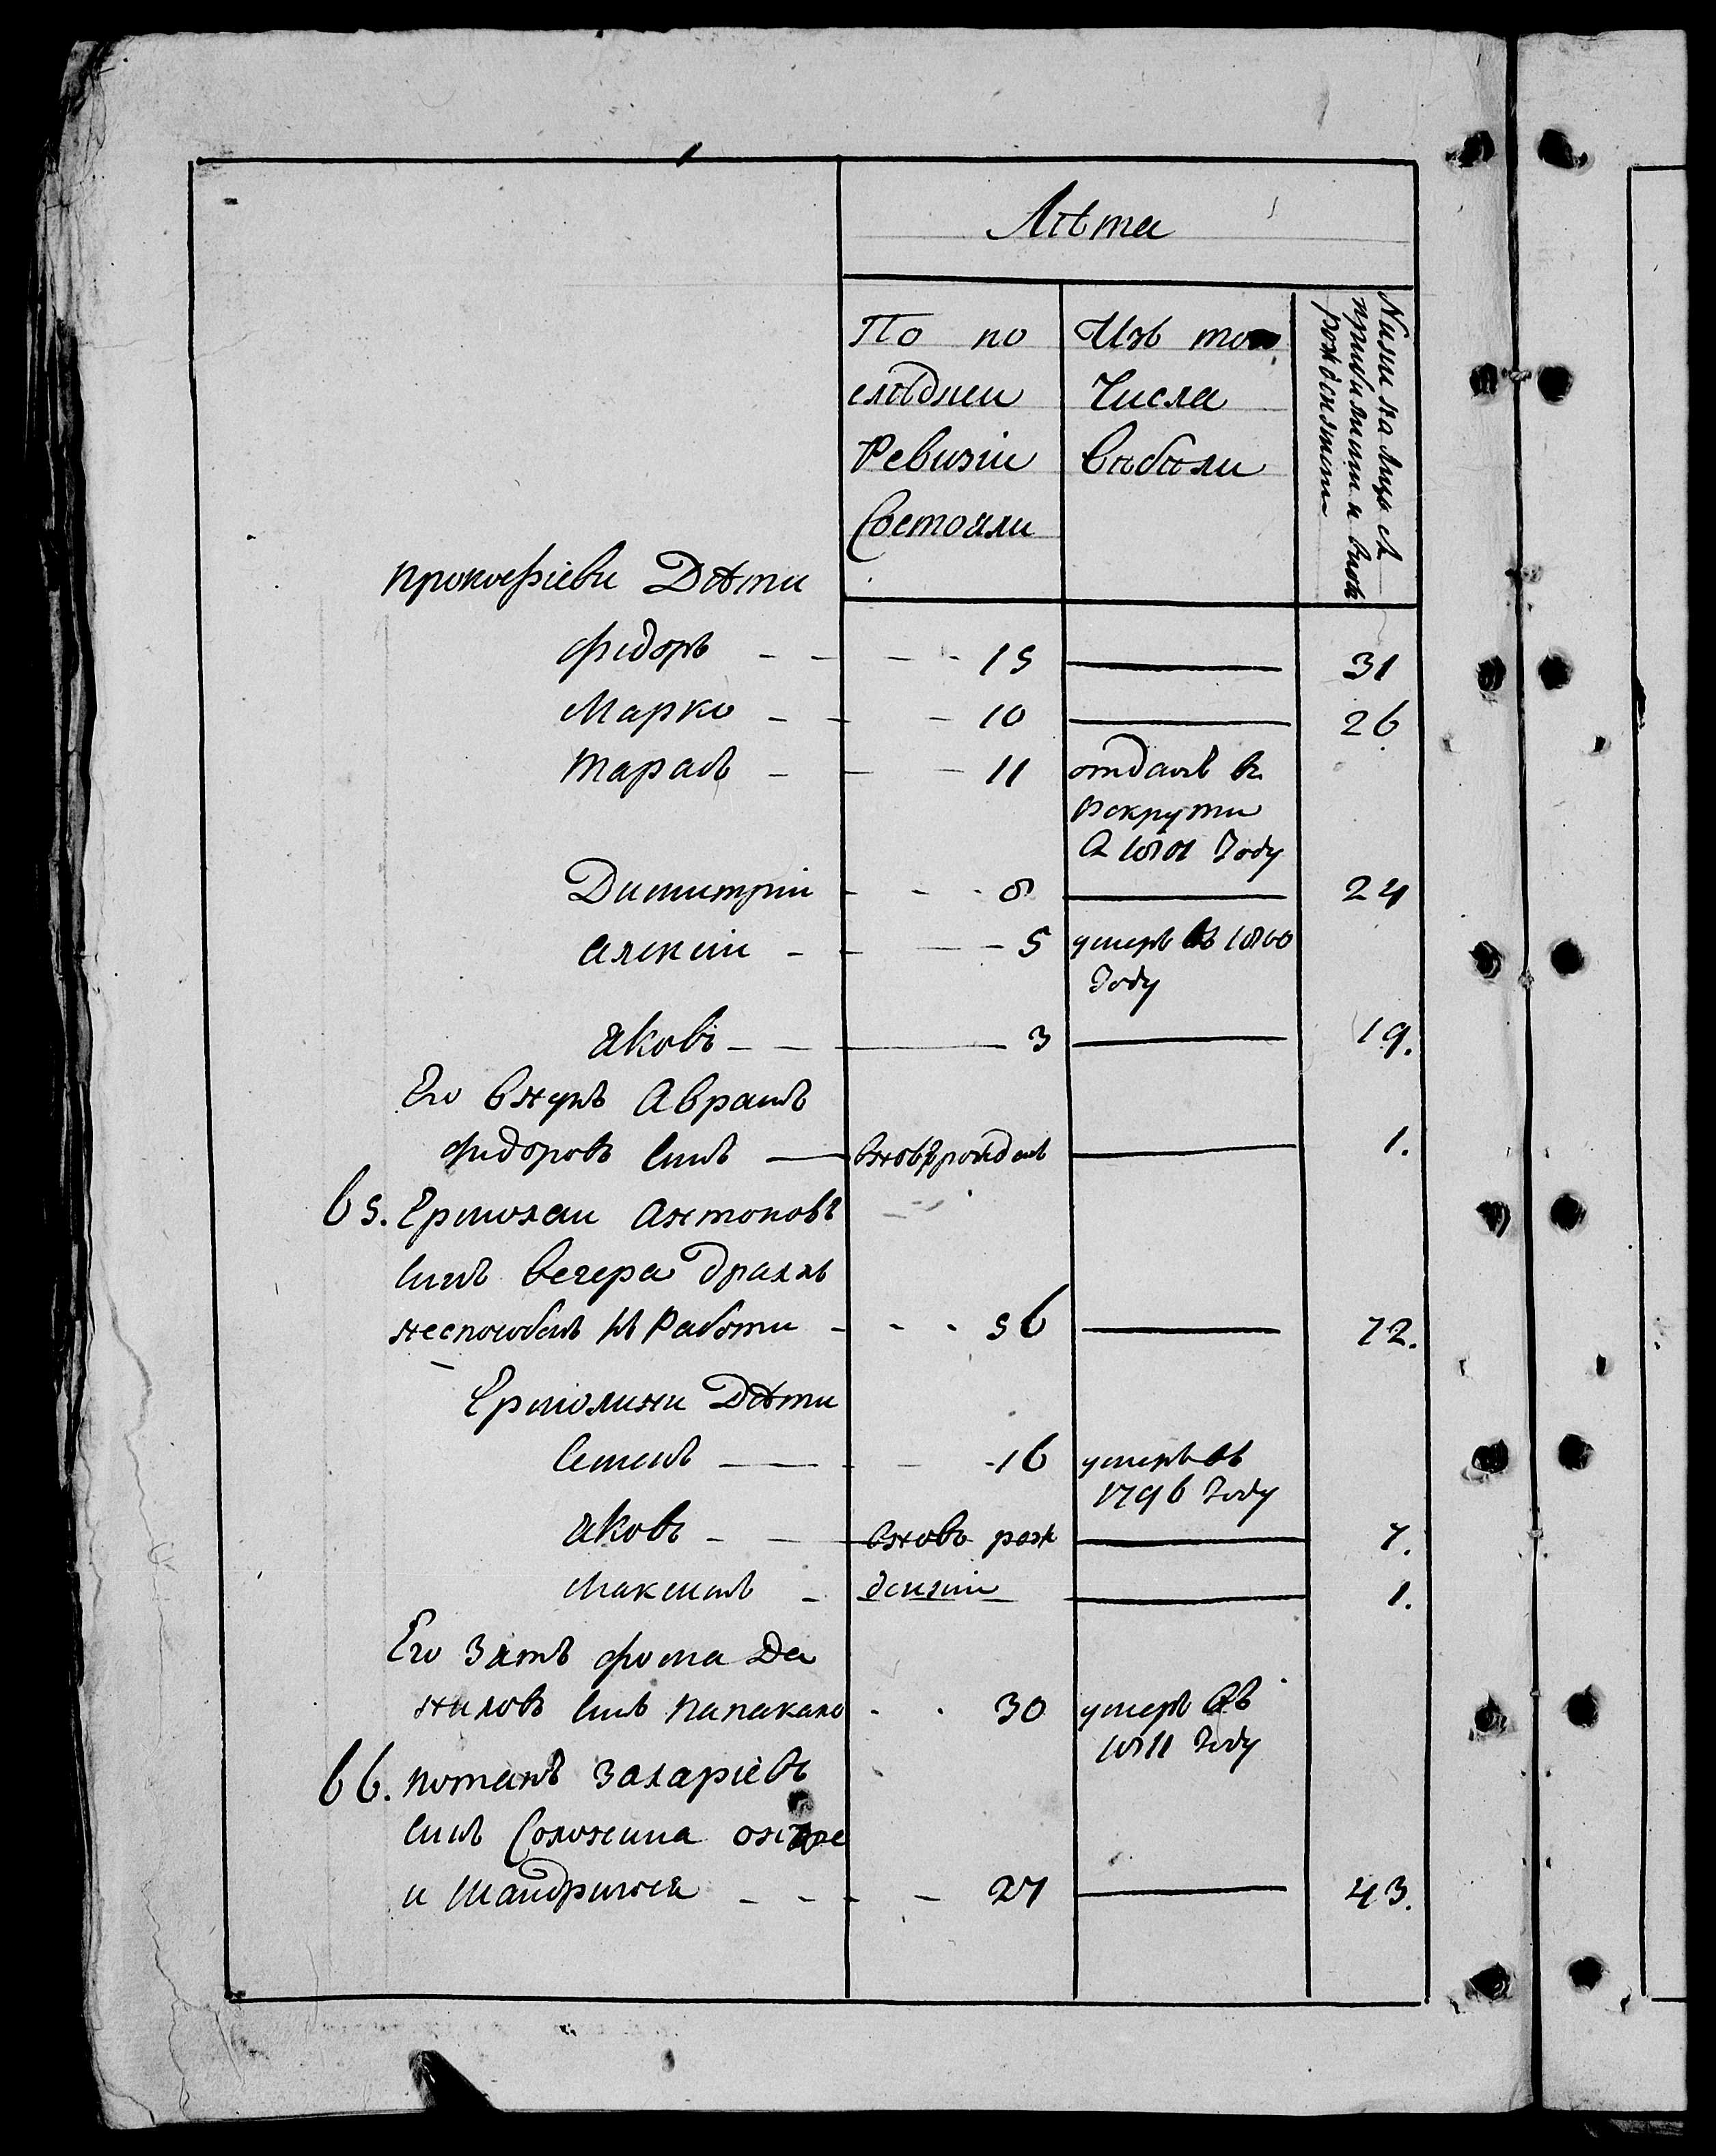 Лѣта
По по
слѣднеи
Ревизіи
Состояли
Изъ того
Числа
Выбыли
Ныни на лицо съ
прибылыми и вновь
рожденними
Прокофіеви Дѣти
Фидоръ - - - - 15 — 31
Марко - - - 10 — 26
Тарасъ - - - 11 отданъ въ
Рекрути
в 1801 Году
Димитрии - - - 8 — 24
Алексіи - - - 5 умеръ въ 1800
Году
Яковъ - - — 3 — 19.
Его внукъ Аврамъ
Фидоровъ синъ — вновь рожденъ — 1.
65. Ермолаи Антоновъ
синъ Вечера драхлъ
неспособенъ къ Работи - - - 56 — 72.
Ермолини Дѣти
Семенъ — - - - 16 умеръ въ
1796 Году
Яковъ - - вновь рож — 7.
Максимъ - деніи — 1.
Его Зятъ Фома Да
ниловъ синъ Папакало - - 30 умеръ въ
1811 Году
66. Потапъ Захаріевъ
синъ Солонина
и Шандрися - - - - 27 — 43.